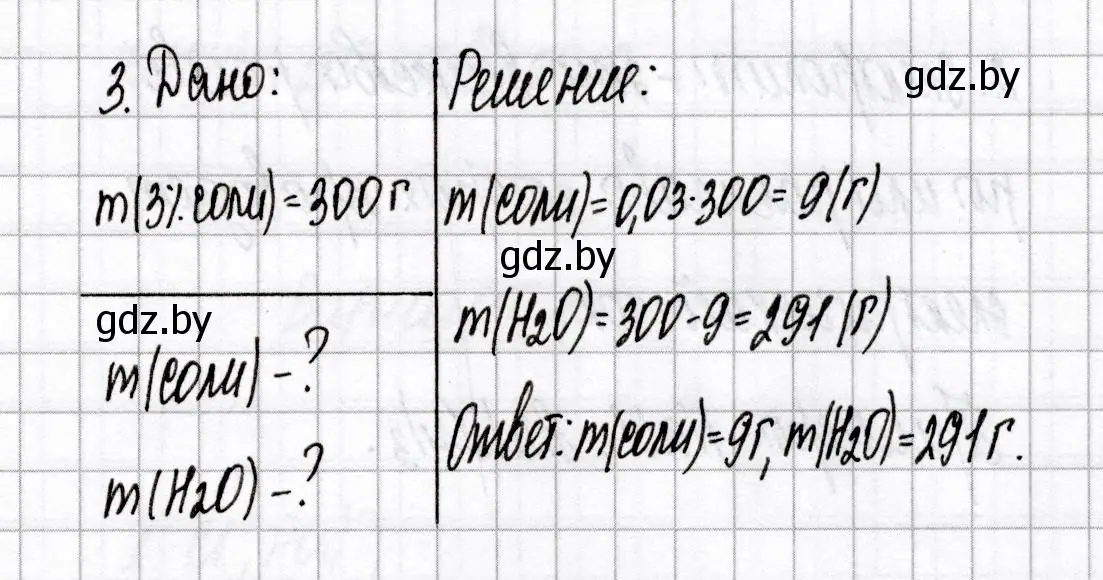 3. Дано:
m(3% соли) = 300 г
m(соли) - ?
m(H2O) - ?
Решение:
m(соли) = 0,03·300 = 9(г)
m(H2O) = 300 - 9 = 291 (г)
Ответ: m(соли) = 9г, m(H2O) = 291 г.
gdz.by
gdz.by
gdz.by